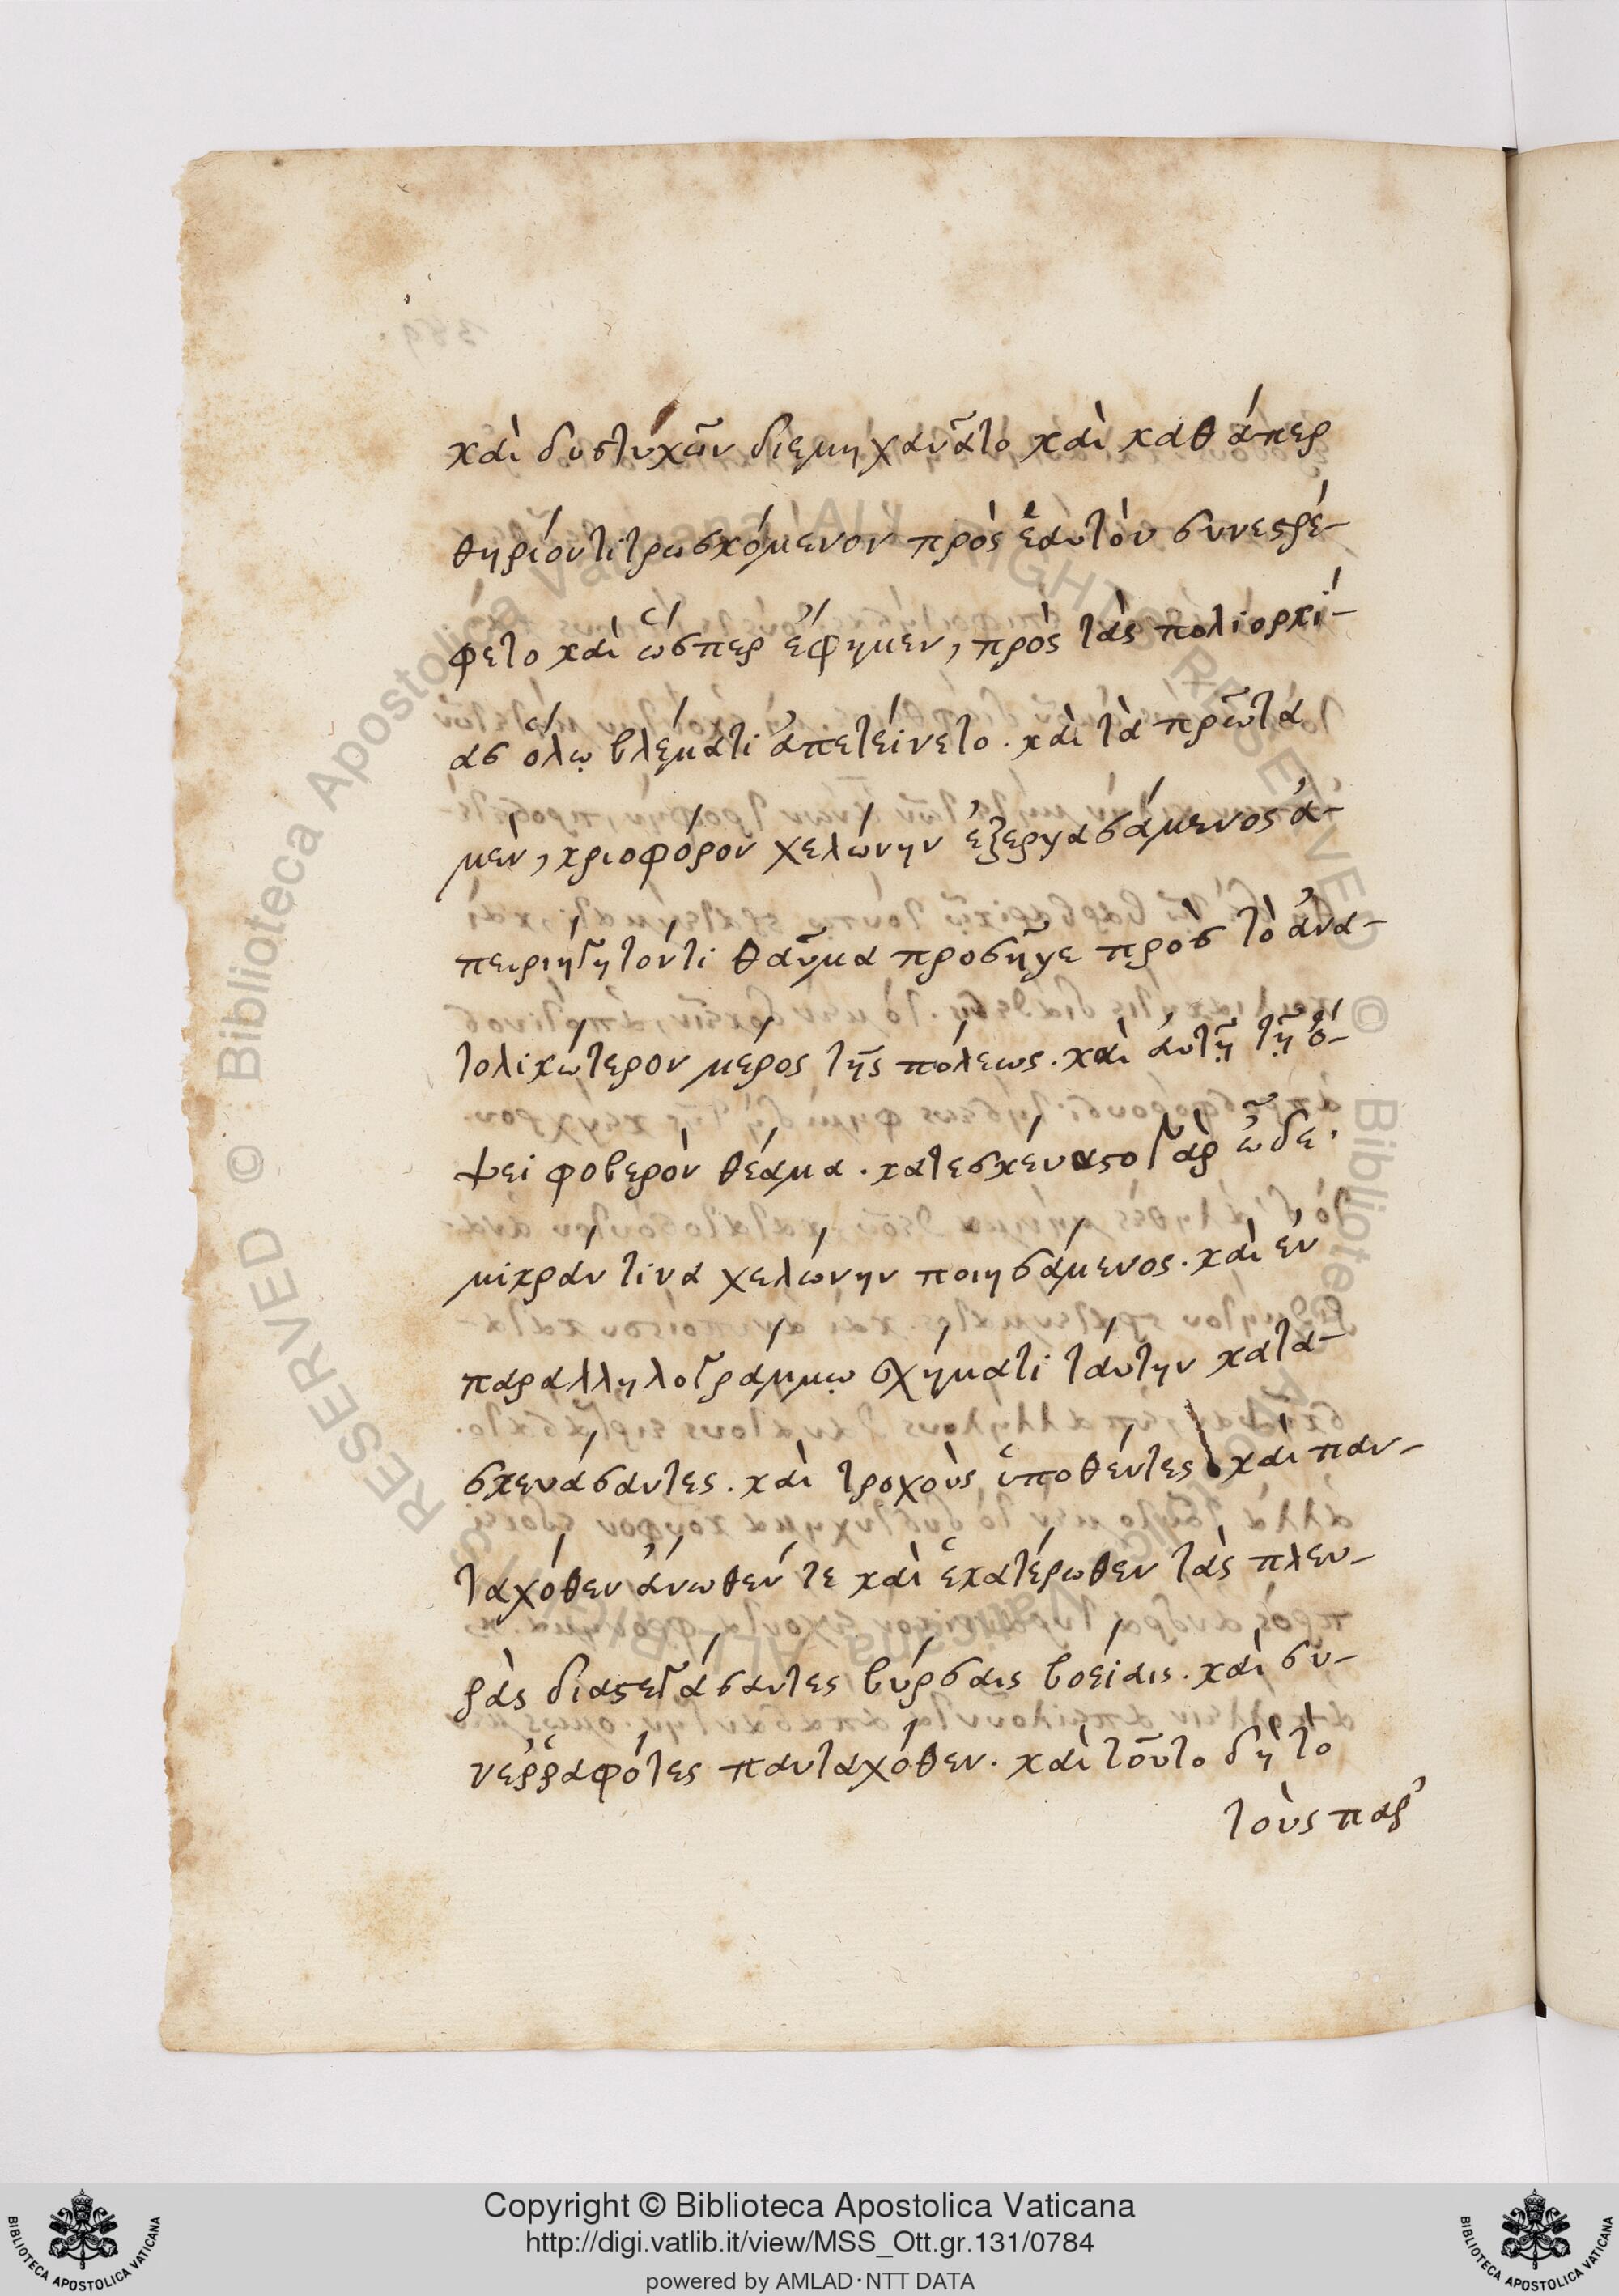 καὶ δυστυχῶν διεμηχανᾶτο καὶ καθάπερ
θηρίον τιτρωσκόμενον πρὸς ἑαυτὸν συνεστρέ-
φετο καὶ ὥσπερ ἔφημεν, πρὸς τὰς πολιορκί-
ας ὅλῳ βλέματι ἀπετείνετο. καὶ τὰ πρῶτα
μεν, κριοφόρον χελώνην ἐξεργασάμενος ἀ-
περιήγητόν τι θαῦμα προσῆγε πρὸς τὸ ἀνα-
τολικώτερον μέρος τῆς πόλεως. καὶ ἀυτῇ τῇ ὄ-
ψει φοβερὸν θέαμα. κατεσκέυαστο γὰρ ὧδε.
μικράν τινα χελώνην ποιησάμενος. καὶ ἐν
παραλληλογράμμῳ σχήματι τάυτην κατα-
σκευάσαντες. καὶ τροχοὺς ὑποθέντες καὶ παν-
ταχόθεν ἄνωθέν τε καὶ ἑκατέρωθεν τὰς πλευ-
ρὰς διαστεγάσαντες βύρσαις βοείαις. καὶ συ-
νεῤῥαφότες πανταχόθεν. καὶ τοῦτο δὴ τὸ
τοὺς παρ'
Copyright © Biblioteca Apostolica Vaticana
http://digi.vatlib.it/view/MSS_Ott.gr.131/0784
powered by AMLAD·NTT DATA
BIBLIOTECA APOSTOLICA VATICANA
BIBLIOTECA APOSTOLICA VATICANA